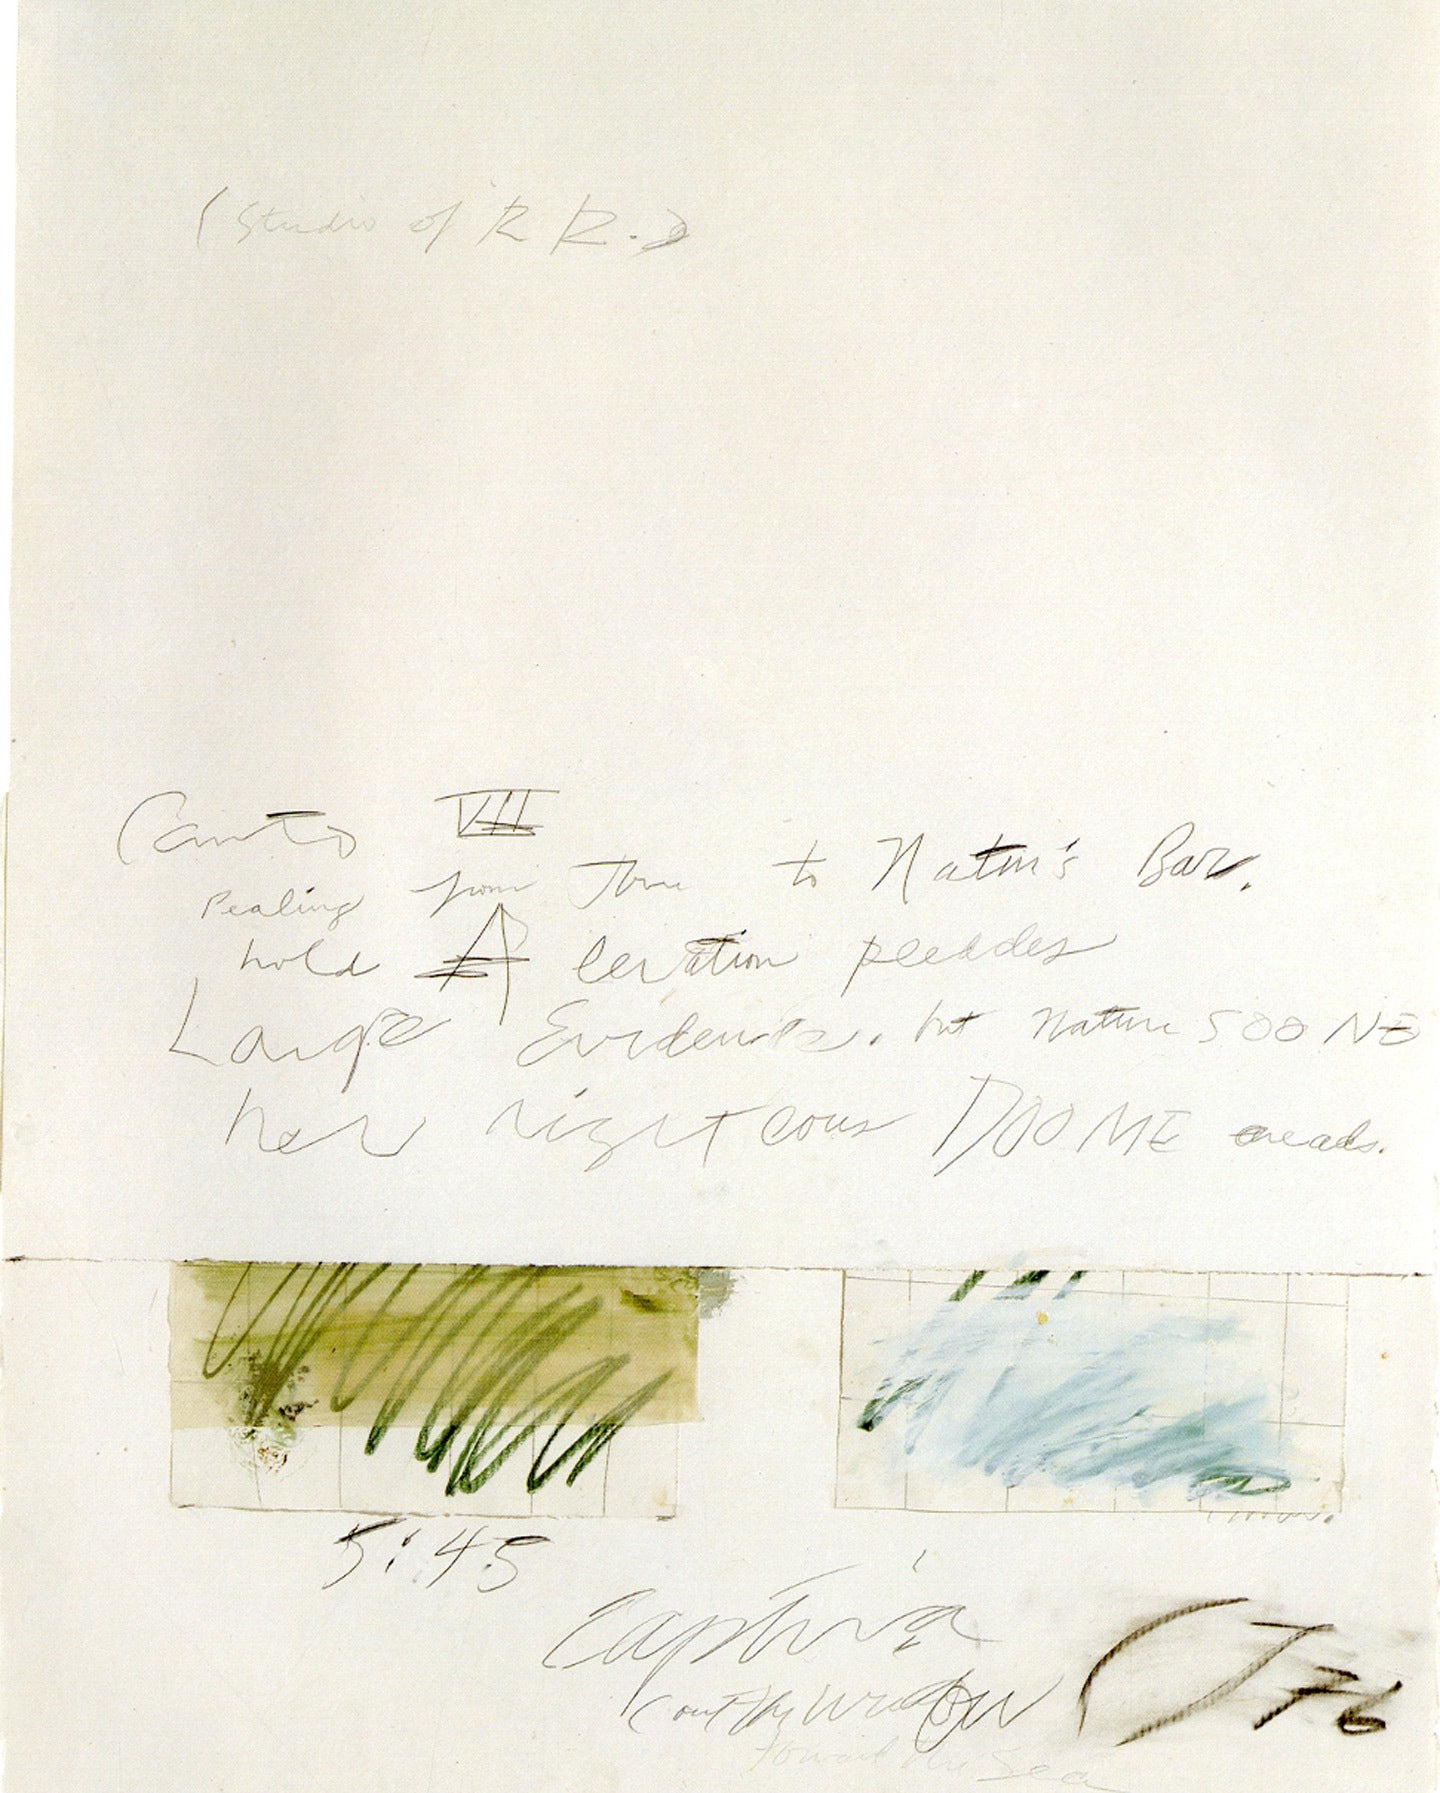 (Studio of R R.)
Canto VII
Pealing from Jove to Natur's Bar.
hold Alteration pleades
Large Evidence. but Nature SOONE
her righteous DOOME areads.
5:45
Captiva
(out the window
toward the Sea
CT 76